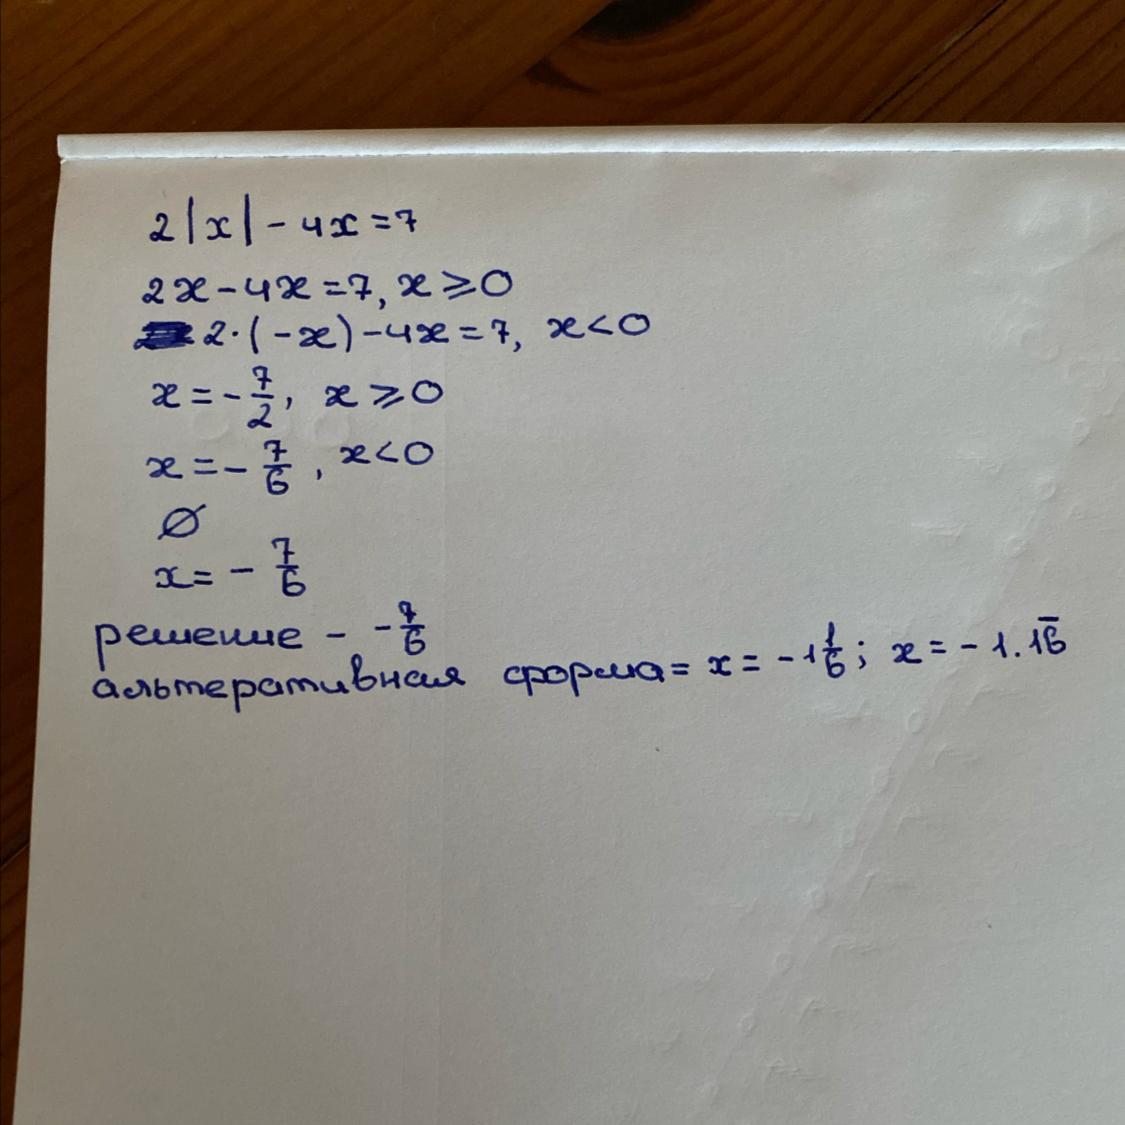 2|x| - 4x = 7
2x - 4x = 7, x ⩾ 0
2·(-x) - 4x = 7, x < 0
x = -7/2, x ⩾ 0
x = -7/6, x < 0
∅
x = -7/6
решение - -7/6
альтеративная форма = x = -1 1/6; x = -1.16̅